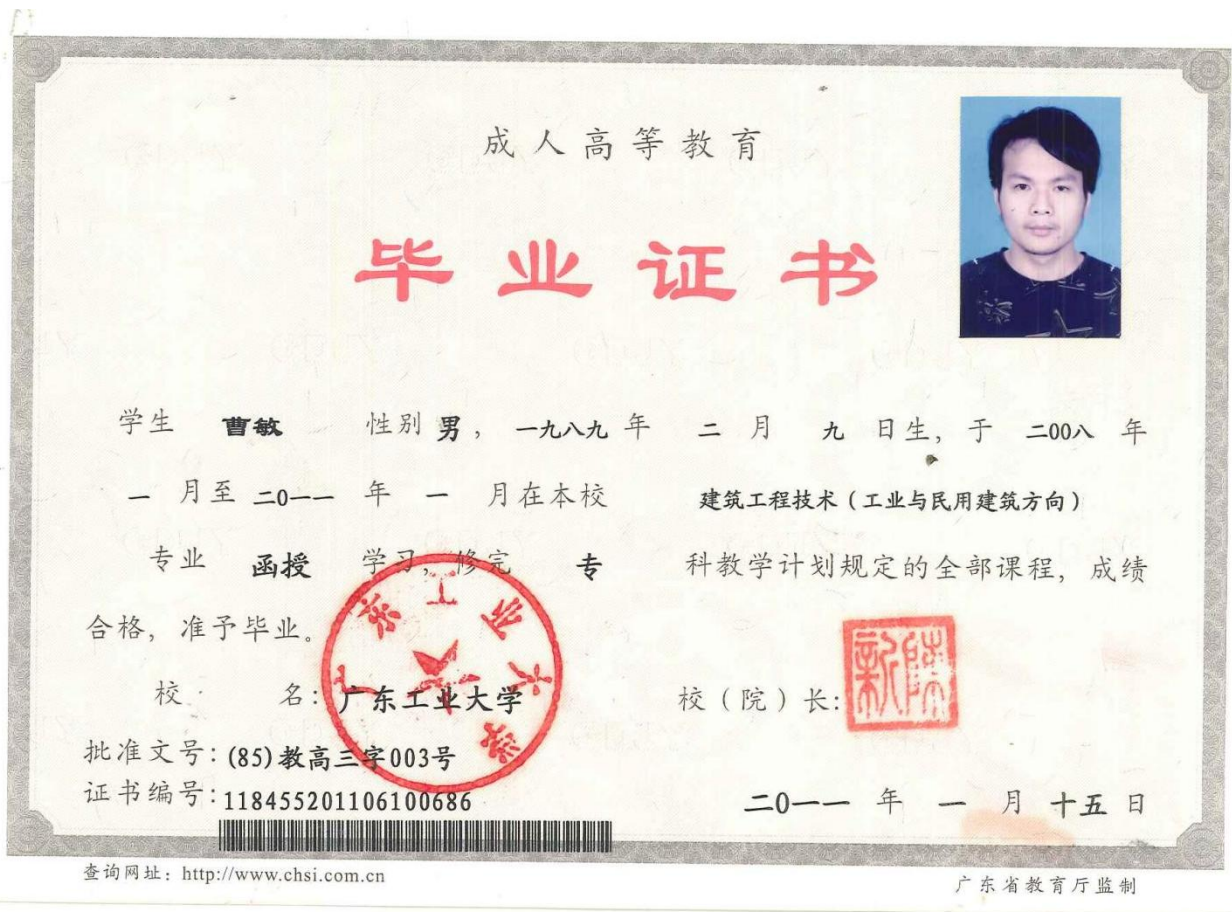 成人高等教育
毕业证书
学生 曹敏 性别 男，一九八九 年 二 月 九 日生，于 二00八 年
一 月至 二0一一 年 一 月在本校 建筑工程技术（工业与民用建筑方向）
专业 函授 学习，修完 专 科教学计划规定的全部课程，成绩
合格，准予毕业。
广东工业大学
校 名：广东工业大学 校（院）长：
陈新
批准文号：(85)教高三字003号
证书编号：118455201106100686
二0一一 年 一 月 十五 日
查询网址：http://www.chsi.com.cn
广东省教育厅监制